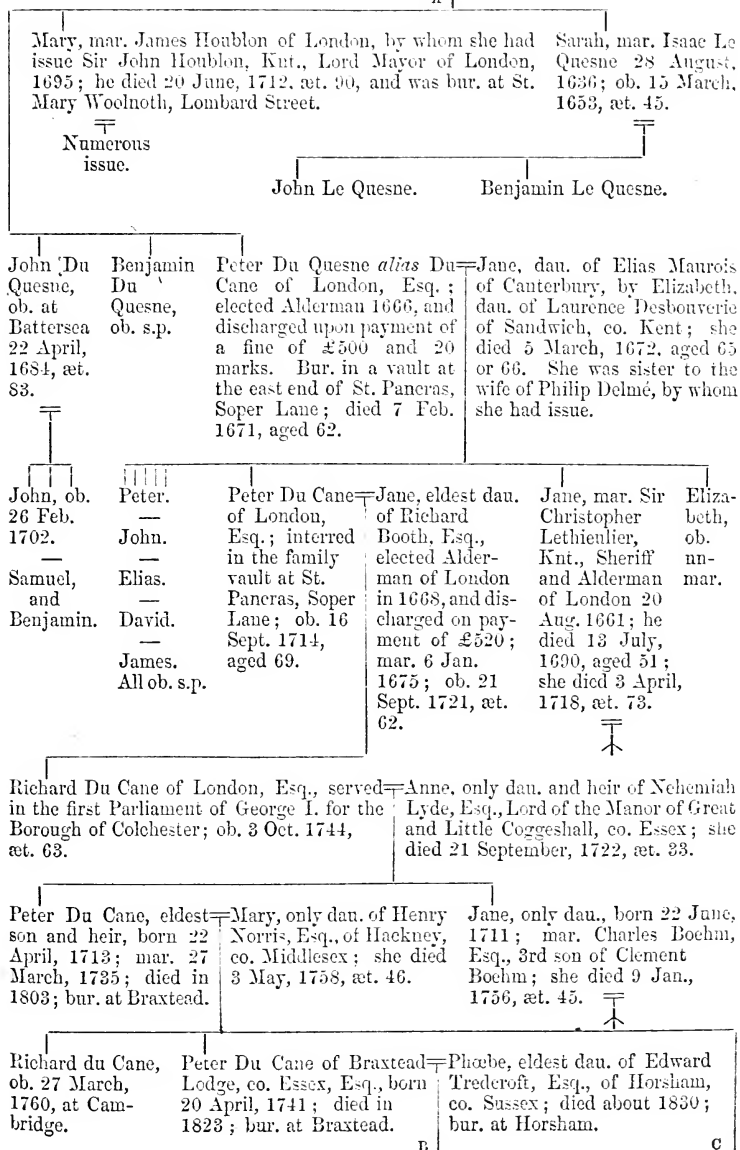 A
Mary, mar. James Houblon of London, by whom she had
issue Sir John Houblon, Knt., Lord Mayor of London,
1695; he died 20 June, 1712, æt. 90, and was bur. at St.
Mary Woolnoth, Lombard Street.
Numerous
issue.
Sarah, mar. Isaac Le
Quesne 28 August,
1636; ob. 15 March,
1653, æt. 45.
John Le Quesne.
Benjamin Le Quesne.
John Du
Quesne,
ob. at
Battersea
22 April,
1684, æt.
83.
Benjamin
Du
Quesne,
ob. s.p.
Peter Du Quesne alias Du
Cane of London, Esq.;
elected Alderman 1666, and
discharged upon payment of
a fine of £500 and 20
marks. Bur. in a vault at
the east end of St. Pancras,
Soper Lane; died 7 Feb.
1671, aged 62.
Jane, dau. of Elias Maurois
of Canterbury, by Elizabeth,
dau. of Laurence Desbouverie
of Sandwich, co. Kent; she
died 5 March, 1672, aged 65
or 66. She was sister to the
wife of Philip Delmé, by whom
she had issue.
John, ob.
26 Feb.
1702.
—
Samuel,
and
Benjamin.
Peter.
—
John.
—
Elias.
—
David.
—
James.
All ob. s.p.
Peter Du Cane
of London,
Esq.; interred
in the family
vault at St.
Pancras, Soper
Lane; ob. 16
Sept. 1714,
aged 69.
Jane, eldest dau.
of Richard
Booth, Esq.,
elected Alder-
man of London
in 1668, and dis-
charged on pay-
ment of £520;
mar. 6 Jan.
1675; ob. 21
Sept. 1721, æt.
62.
Jane, mar. Sir
Christopher
Lethieulier,
Knt., Sheriff
and Alderman
of London 20
Aug. 1661; he
died 13 July,
1690, aged 51;
she died 3 April,
1718, æt. 73.
Eliza-
beth,
ob.
un-
mar.
Richard Du Cane of London, Esq., served
in the first Parliament of George I. for the
Borough of Colchester; ob. 3 Oct. 1744,
æt. 63.
Anne, only dau. and heir of Nehemiah
Lyde, Esq., Lord of the Manor of Great
and Little Coggeshall, co. Essex; she
died 21 September, 1722, æt. 33.
Peter Du Cane, eldest
son and heir, born 22
April, 1713; mar. 27
March, 1735; died in
1803; bur. at Braxtead.
Mary, only dau. of Henry
Norris, Esq., of Hackney,
co. Middlesex; she died
3 May, 1758, æt. 46.
Jane, only dau., born 22 June,
1711; mar. Charles Boehm,
Esq., 3rd son of Clement
Boehm; she died 9 Jan.,
1756, æt. 45.
Richard du Cane,
ob. 27 March,
1760, at Cam-
bridge.
Peter Du Cane of Braxtead
Lodge, co. Essex, Esq., born
20 April, 1741; died in
1823; bur. at Braxtead.
Phœbe, eldest dau. of Edward
Tredcroft, Esq., of Horsham,
co. Sussex; died about 1830;
bur. at Horsham.
B
C